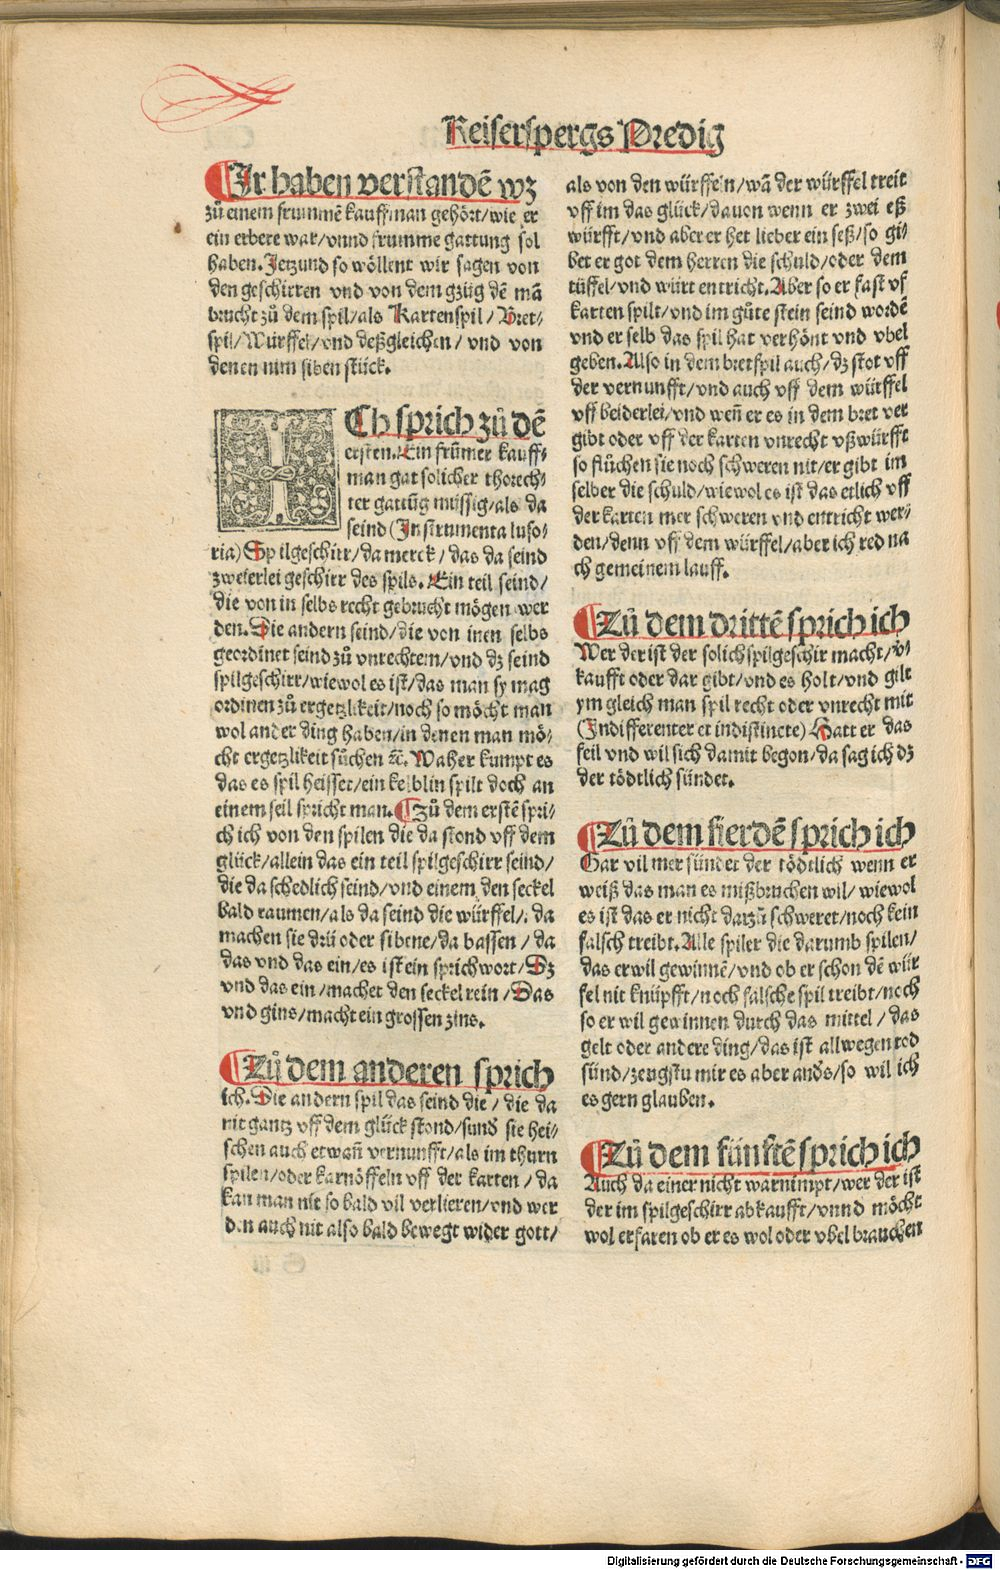 Keiserspergs Predig
¶Ir haben verstandē wz
zů einem frummē kauffman gehört/wie er
ein erbere war/vnnd frumme gattung sol
haben. Jetzund so wöllent wir sagen von
den geschirren vnd von dem gzüg dē mā
brucht zů dem spil/als Kartenspil/ Bret⸗
spil/Würffel/vnd deßgleichen/ vnd von
denen nim siben stück.
ICh sprich zů dē
ersten. Ein frūmer kauff⸗
man gat solicher thorech⸗
ter gattūg müssig/als da
seind (Instrumenta luso⸗
ria) Spilgeschirr/da merck/ das da seind
zweierlei geschirr des spils. Ein teil seind/
die von in selbs recht gebrucht mögen wer
den. Die andern seind/die von inen selbs
geordinet seind zů vnrechtem/vnd dz seind
spilgeschirr/wiewol es ist/das man sy mag
ordinen zů ergetzlikeit/noch so möcht man
wol ander ding haben/in denen man mö⸗
cht ergetzlikeit sůchen ⁊c. Waher kumpt es
das es spil heisset/ein kelblin spilt doch an
einem seil spricht man. ¶Zů dem erstē spri⸗
ch ich von den spilen die da stond vff dem
glück/allein das ein teil spilgeschirr seind/
die da schedlich seind/vnd einem den seckel
bald raumen/als da seind die würffel/: da
machen sie drü oder sibene/da bassen/ da
das vnd das ein/es ist ein sprichwort/Dz
vnd das ein/machet den seckel rein/Das
vnd gins/macht ein grossen zins.
¶Zů dem anderen sprich
ich. Die andern spil das seind die/ die da
nit gantz vff dem glück stond/sund̄ sie hei⸗
schen auch etwañ vernunfft/als im thurn
spilen/oder karnöffeln vff der karten/ da
kan man nit so bald vil verlieren/vnd wer
den auch nit also bald bewegt wider gott/
als von den würffeln/wā der würffel treit
vff im das glück/dauon wenn er zwei eß
würfft/vnd aber er het lieber ein seß/so gi⸗
bet er got dem herren die schuld/oder dem
tüffel/vnd würt entricht. Aber so er fast vf
karten spilt/vnd im gůte stein seind wordē
vnd er selb das spil hat verhönt vnd vbel
geben. Also in dem bretspil auch/dz stot vff
der vernunfft/vnd auch vff dem würffel
vff beiderlei/vnd weñ er es in dem bret ver
gibt oder vff der karten vnrecht vßwürfft
so flůchen sie noch schweren nit/er gibt im
selber die schuld/wiewol es ist das etlich vff
der karten mer schweren vnd entricht wer⸗
den/denn vff dem würffel/aber ich red na
ch gemeinem lauff.
¶Zů dem drittē sprich ich
Wer der ist der solich spilgeschir macht/v̄⸗
kaufft oder dar gibt/vnd es holt/vnd gilt
ym gleich man spil recht oder vnrecht mit
(Indifferenter et indistincte) Hatt er das
feil vnd wil sich damit begon/da sag ich dz
der tödtlich sündet.
¶Zů dem fierdē sprich ich
Gar vil mer sündet der tödtlich wenn er
weiß das man es mißbruchen wil/ wiewol
es ist das er nicht darzů schweret/noch kein
falsch treibt. Alle spiler die darumb spilen/
das er wil gewinnē/vnd ob er schon dē wür
fel nit knüpfft/noch falsche spil treibt/noch
so er wil gewinnen durch das mittel/ das
gelt oder andere ding/das ist allwegen tod
sünd/zeugstu mir es aber and̄s/so wil ich
es gern glauben.
¶Zů dem fünftē sprich ich
Auch da einer nicht warnimpt/wer der ist
der im spilgeschirr abkaufft/vnnd möcht
wol erfaren ob er es wol oder vbel brauchen
Digitalisierung gefördert durch die Deutsche Forschungsgemeinschaft - DFG